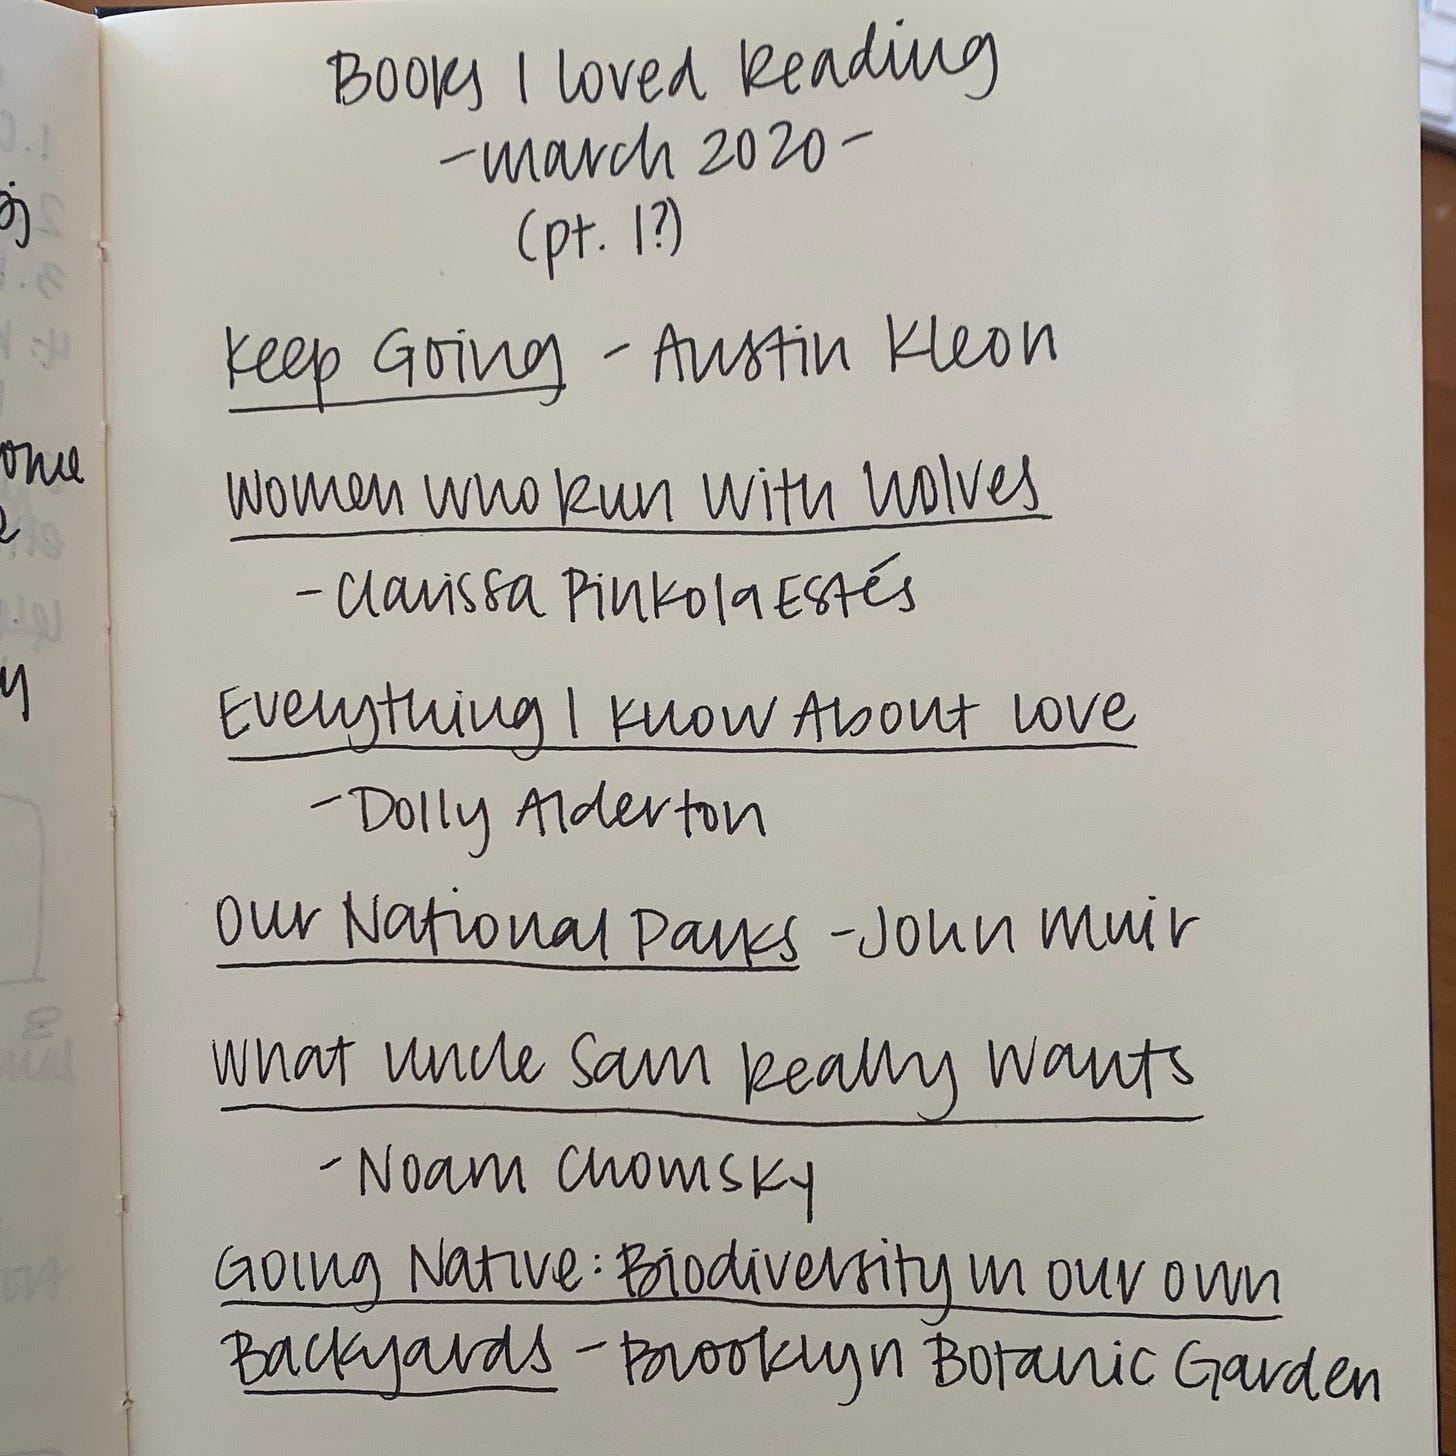 Books I Loved Reading
- March 2020 -
(pt. 1?)
Keep Going - Austin Kleon
Women Who Run With Wolves
- Clarissa Pinkola Estés
Everything I Know About Love
- Dolly Alderton
Our National Parks - John Muir
What Uncle Sam Really Wants
- Noam Chomsky
Going Native: Biodiversity in Our Own
Backyards - Brooklyn Botanic Garden